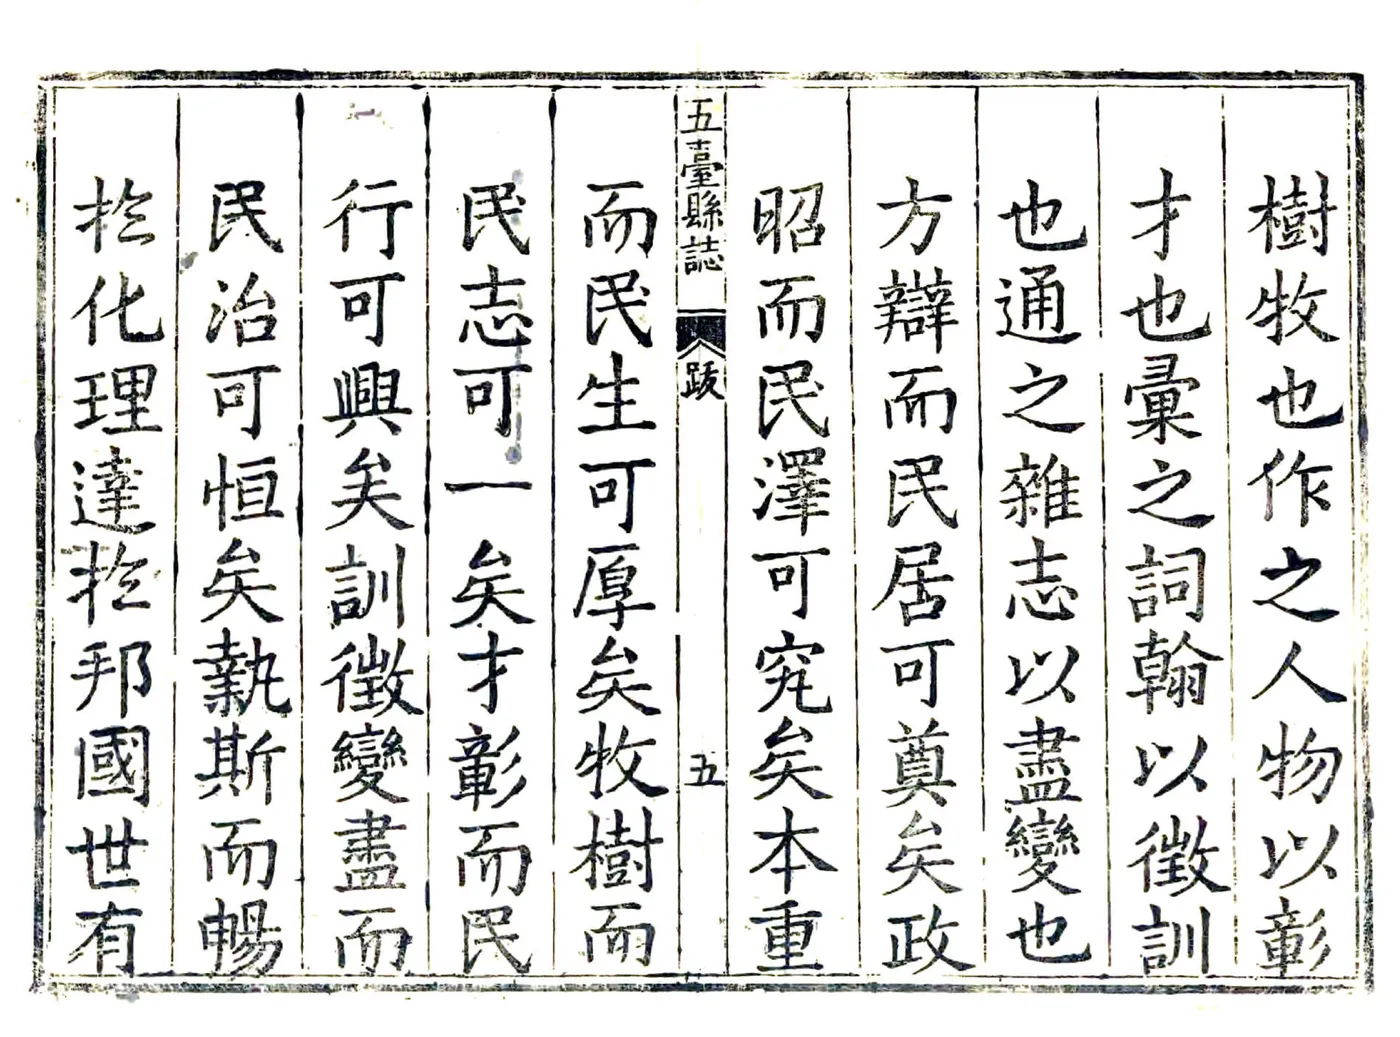 樹牧也作之人物以彰
才也彙之詞翰以徵訓
也通之雜志以盡變也
方辯而民居可奠矣政
昭而民澤可究矣本重
五臺縣誌
跋
五
而民生可厚矣牧樹而
民志可一矣才彰而民
行可興矣訓徵變盡而
民治可恒矣執斯而暢
於化理達於邦國世有